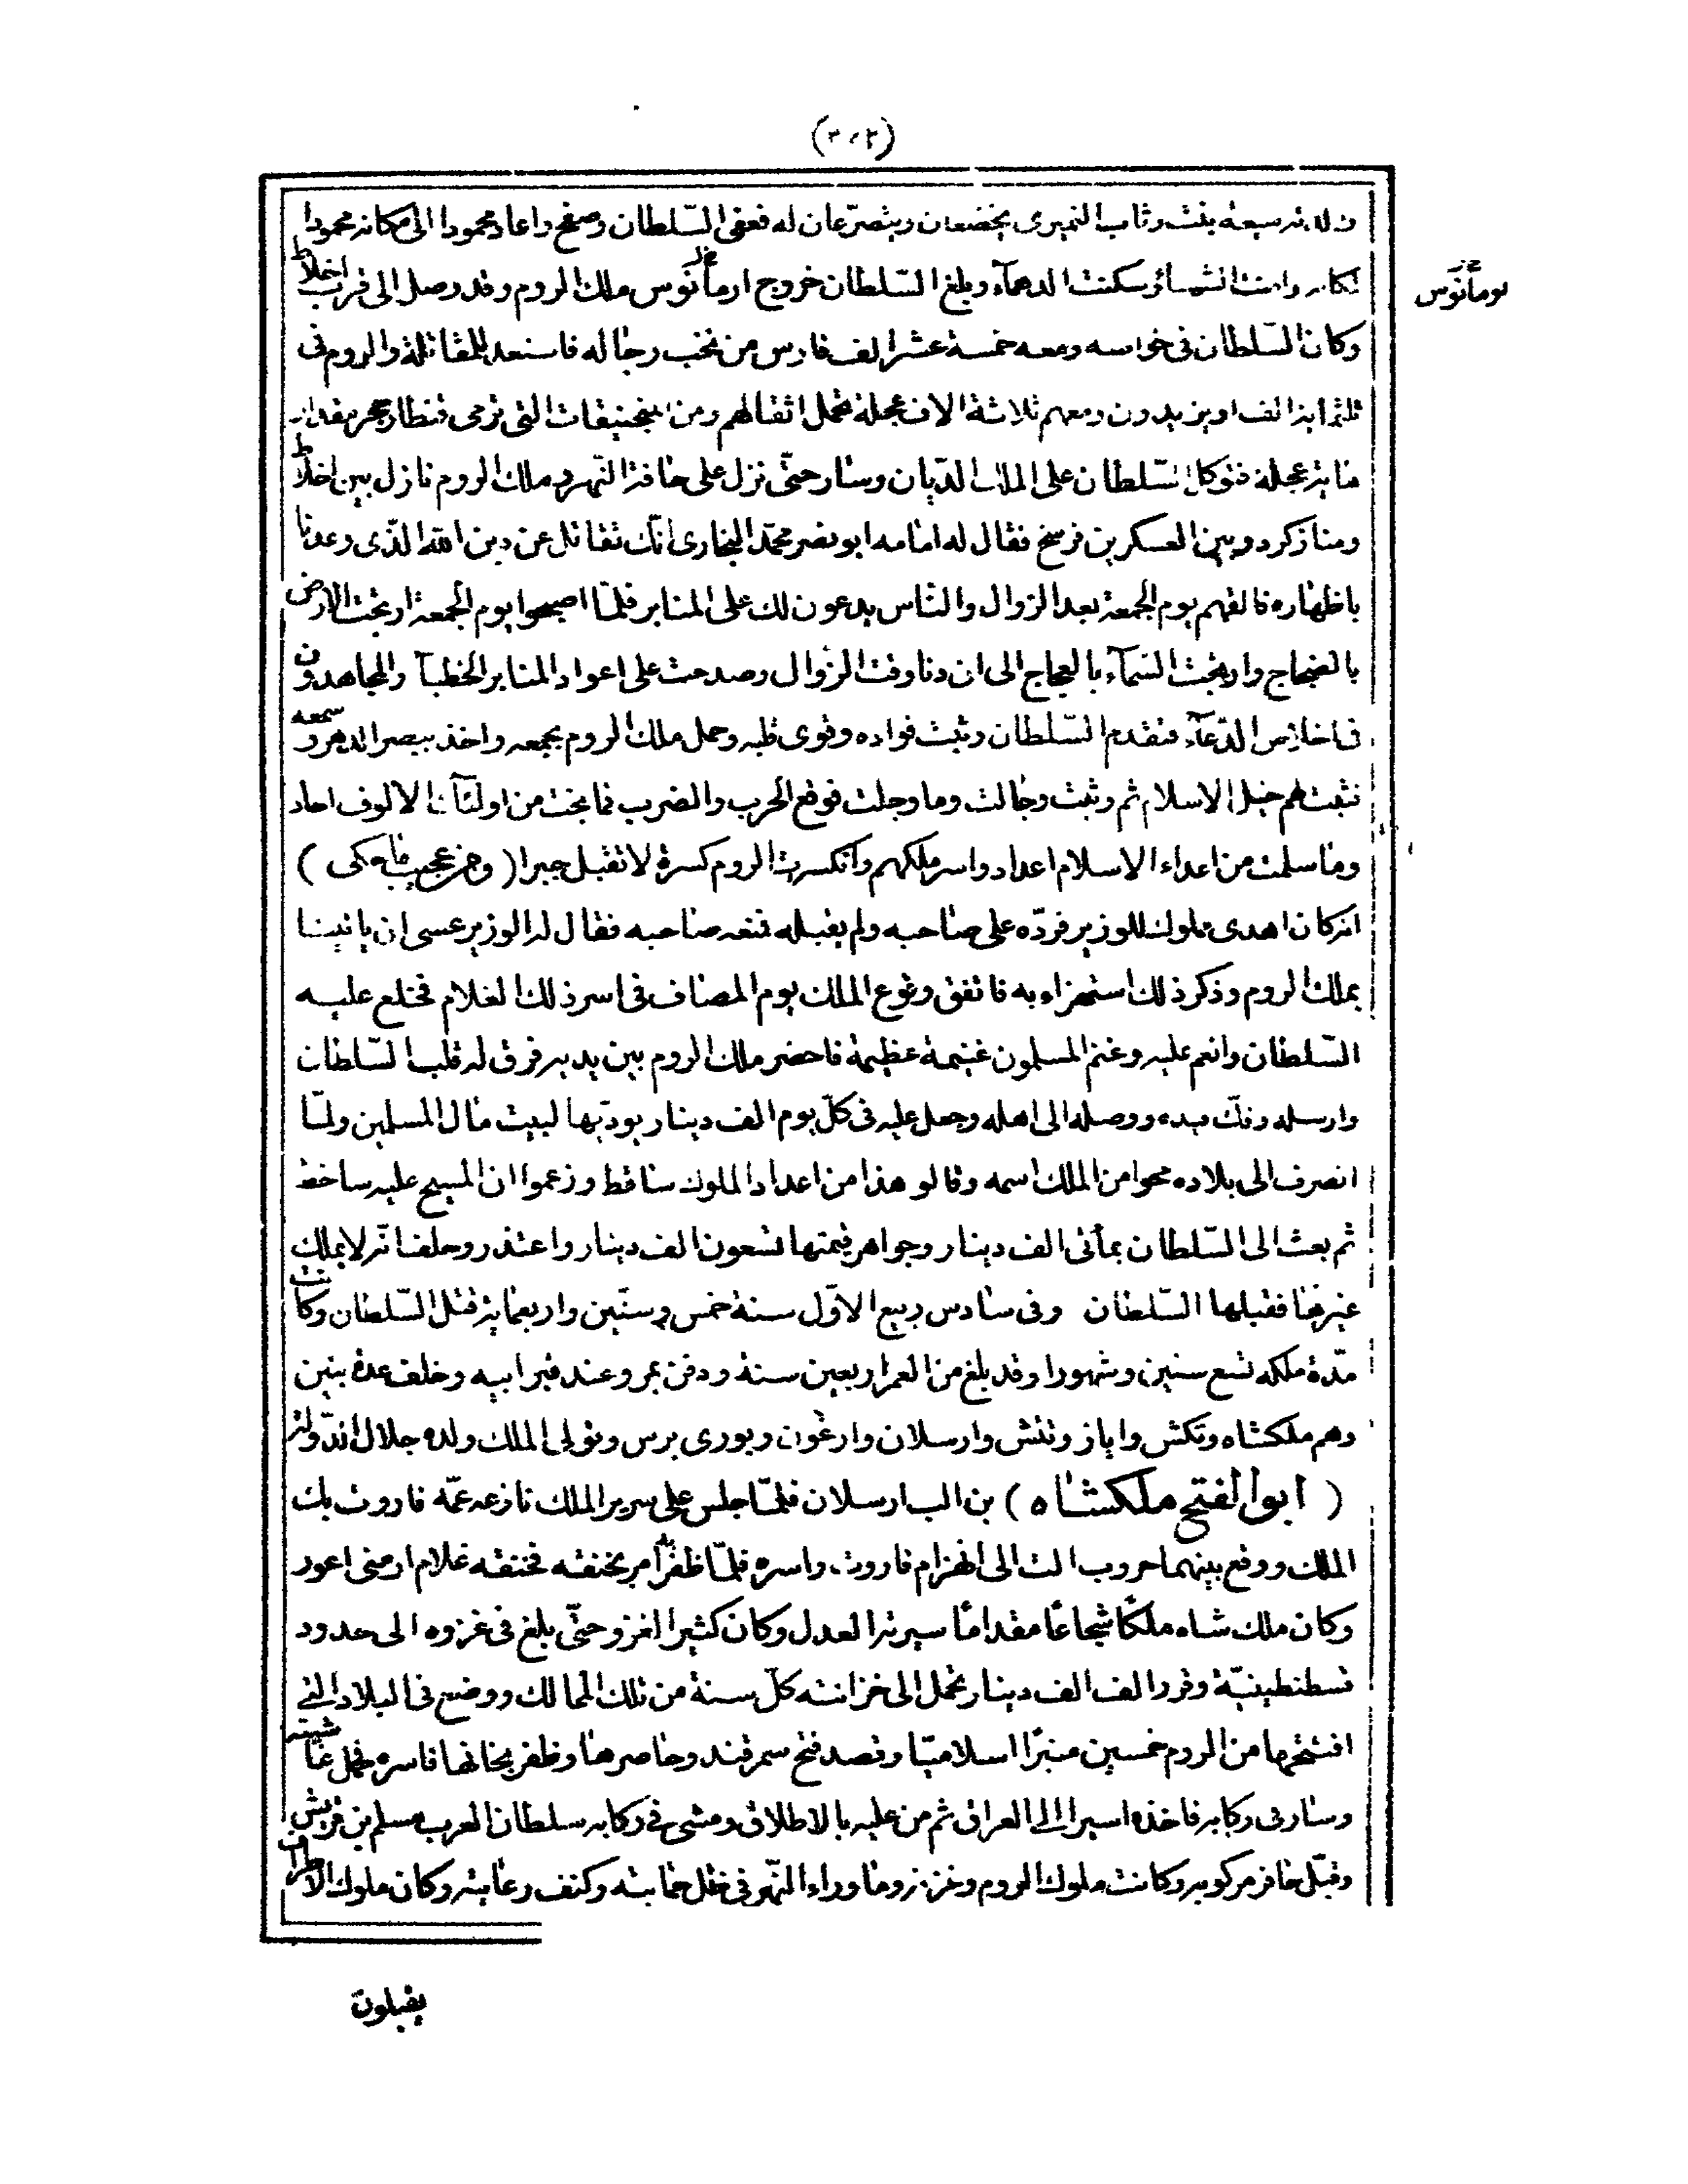 (٣٠٢)
بنت وثاب النميرى يخضعان ويتضرّعان له فعفى السّلطان وصفح واعاد محمودا الى مكانه محمودا
وسكنت الدهمآء وبلغ السّلطان خروج ارمانوس ملك الروم وقد وصل الى قرب اخلاط
وكان السّلطان فى خواصه ومعه خمسة عشر الف فارس من نخب رجاله فاستعد للمقاتلة والروم فى
ثلثمائة الف او يزيدون ومعهم ثلاثة الاف عجلة تحمل اثقالهم ومن المنجنيقات التى ترمى قنطار حجر بمقدار
مائة عجلة فتوكل السّلطان على الملك الدّيان وسار حتّى نزل على حافة النّهر وملك الروم نازل بين اخلاط
ومنازكرد وبين العسكرين فرسخ فقال له امامه ابو نصر محمّد البخارى انّك تقاتل عن دين الله الّذى وعدنا
باظهاره فالقهم يوم الجمعة بعد الزوال والنّاس يدعون لك على المنابر فلمّا اصبحوا يوم الجمعة ارتجت الارض
بالضجاج وارتجت السّمآء بالعجاج الى ان دنا وقت الزوال وصدحت على اعواد المنابر الخطبآ والمجاهدون
فى اخلاص الدّعآء فتقدم السّلطان وثبت فواده وقوى قلبه وحمل ملك الروم بجمعه واخذ ببصر الدهر وسمعه
فثبت لهم خيل الاسلام ثم وثبت وجالت وما وجلت فوقع الحرب والضرب فما نجت من اولئآك الالوف احاد
وما سلمت من اعداء الاسلام اعداد واسر ملكهم وانكسرت الروم كسرة لا تقبل جبرا (ومن عجيب ما حكى)
انه كان اهدى مملوك للوزير فردّه على صاحبه ولم يقبله فنعه صاحبه فقال له الوزير عسى ان ياتينا
بملك الروم وذكر ذلك استهزاء به فاتفق وقوع الملك يوم المصاف فى اسر ذلك الغلام فخلع عليه
السّلطان وانعم عليه وغنم المسلمون غنيمة عظيمة فاحضر ملك الروم بين يديه فرق له قلب السّلطان
وارسله وفكّ قيده ووصله الى اهله وجعل عليه فى كلّ يوم الف دينار يوديها لبيت مال المسلمين ولمّا
انصرف الى بلاده محوا من الملك اسمه وقالو هذا من اعداد الملوك ساقط وزعموا ان المسيح عليه ساخط
ثم بعث الى السّلطان بمأتى الف دينار وجواهر قيمتها تسعون الف دينار واعتذر وحلف انّه لا يملك
غيرها فقبلها السّلطان وفى سادس ربيع الاوّل سنة خمس وستّين واربعمائة قتل السّلطان وكانت
مدّة ملكه تسع سنين وشهورا وقد بلغ من العمر اربعين سنة ودفن بمرو عند قبر ابيه وخلف عدة بنين
وهم ملكشاه وتكش واياز وتتش وارسلان وارغون وبورى برس وتولى الملك ولده جلال الدّولة
(ابوالفتح ملكشاه) بن الب ارسلان فلمّا جلس على سرير الملك نازعه عمّه قاروت بك
الملك ووقع بينهما حروب الت الى انهزام قاروت واسره فلمّا ظفر به امر بخنقه فخنقه غلام ارمنى اعور
وكان ملك شاه ملكًا شجاعًا مقدامًا سيرته العدل وكان كثير الغزو حتّى بلغ فى غزوه الى حدود
قسطنطينيّة وقرر الف الف دينار تحمل الى خزانته كلّ سنة من تلك الممالك ووضع فى البلاد التى
افتتحها من الروم خمسين منبرًا اسلاميّا وقصد فتح سمرقند وحاصرها وظفر بخانها فاسره فحمل غاشيته
وسار فى ركابه فاخذه اسيرا الى العراق ثم من عليه بالاطلاق ومشى فى ركابه سلطان العرب مسلم بن قريش
وقبّل حافر مركوبه وكانت ملوك الروم وغزنة وما وراء النّهر فى ظل حمايته وكنف رعايته وكان ملوك الاطراف
يقبلون
رومانوس